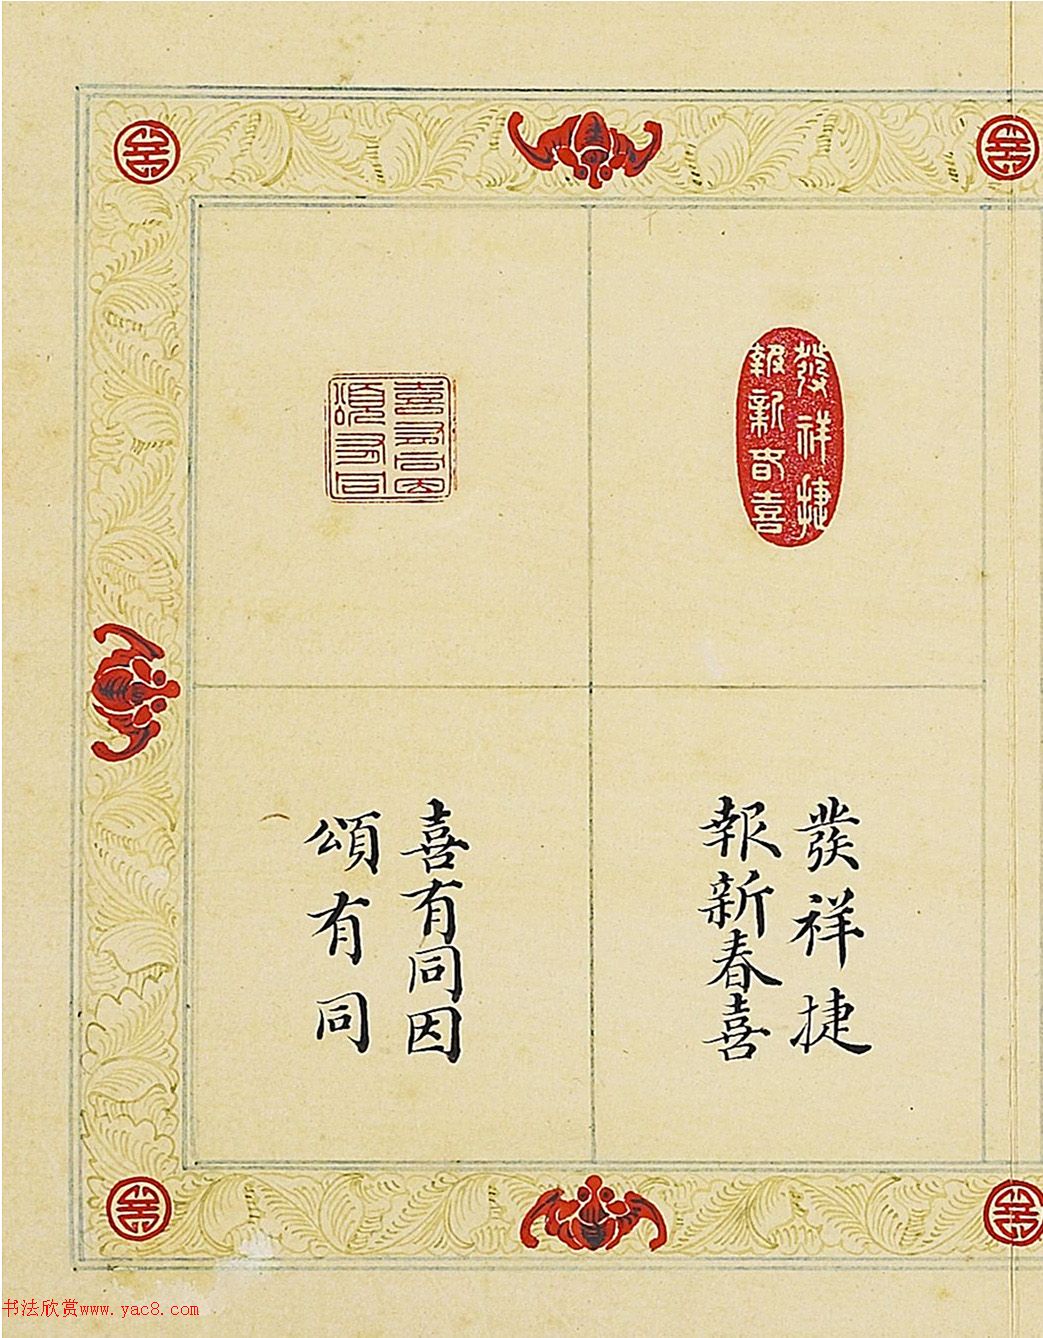 發祥捷
報新春喜
喜有同因
頌有同
發祥捷
報新春喜
喜有同因
頌有同
书法欣赏www.yac8.com